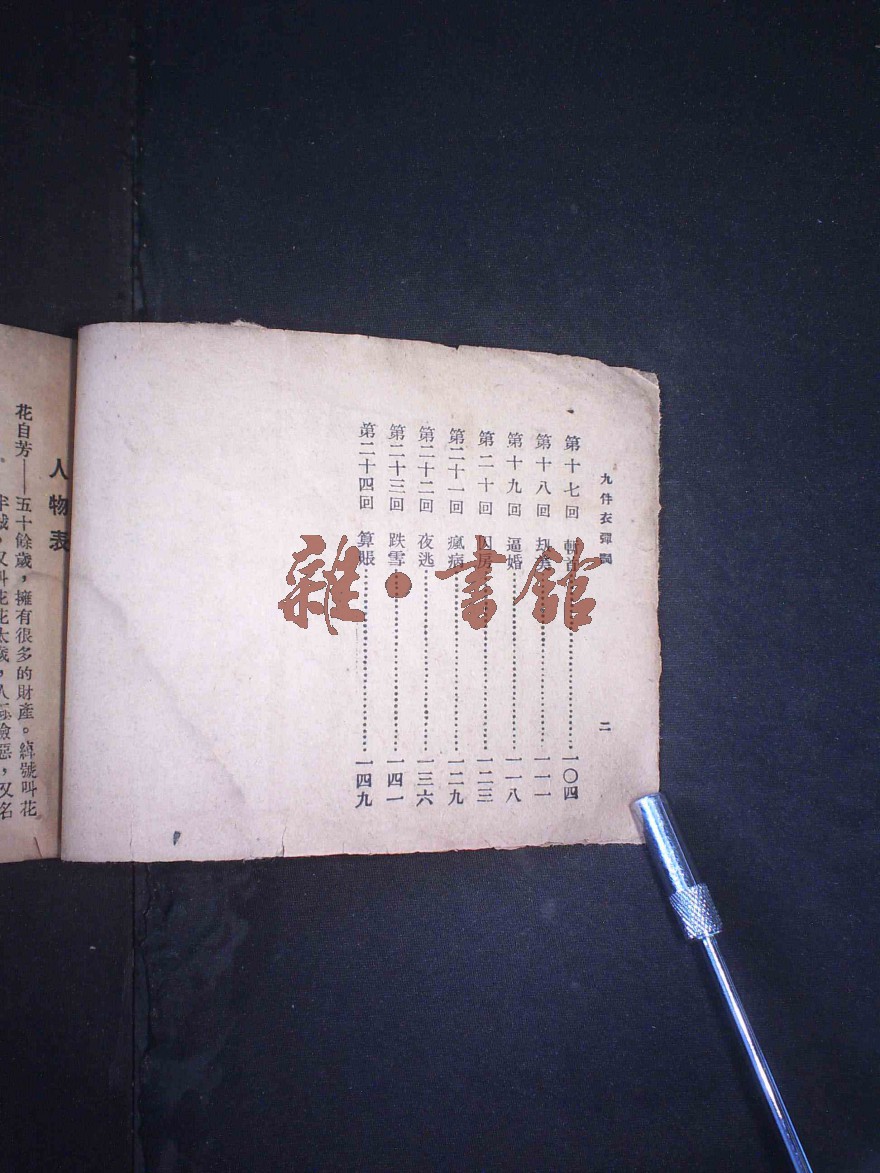 九件衣彈詞 二
第十七回 斬首 一〇四
第十八回 刼美 一一一
第十九回 逼婚 一一八
第二十回 囚房 一二三
第二十一回 瘋病 一二九
第二十二回 夜逃 一三六
第二十三回 跌雪 一四一
第二十四回 算賬 一四九
人物表
花自芳——五十餘歲，擁有很多的財產。綽號叫花
又叫花花太歲，人極險惡，又名
雜·書館